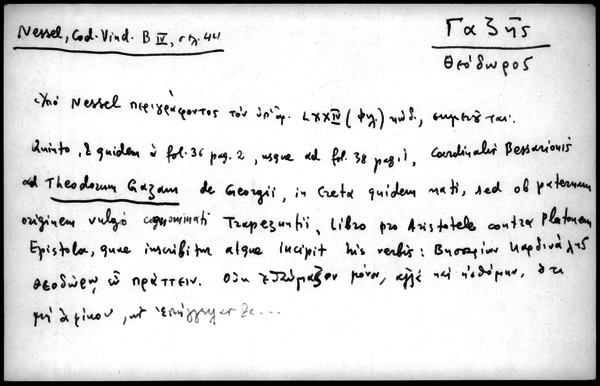 Nessel, Cod. Vind. B IV, σελ. 44
Γαζῆς
Θεόδωρος
Ὑπὸ Nessel περιγράφοντος τὸν ὑπ' ἀρ. LXXIV (φιλ.) κώδ., σημειοῦται:
Quinto, & quidem à fol. 36 pag. 2, usque ad fol. 38 pag. 1, Cardinalis Bessarionis
ad Theodorum Gazam de Georgii, in Creta quidem nati, sed ob paternam
originem vulgò cognominati Trapezuntii, Libro pro Aristotele contra Platonem
Epistola, quae inscribitur atque incipit his verbis: Βησαρίων Καρδινάλης
Θεοδώρῳ εὖ πράττειν. Οὐκ ἐθαύμαζον μόνον, ἀλλὰ καὶ